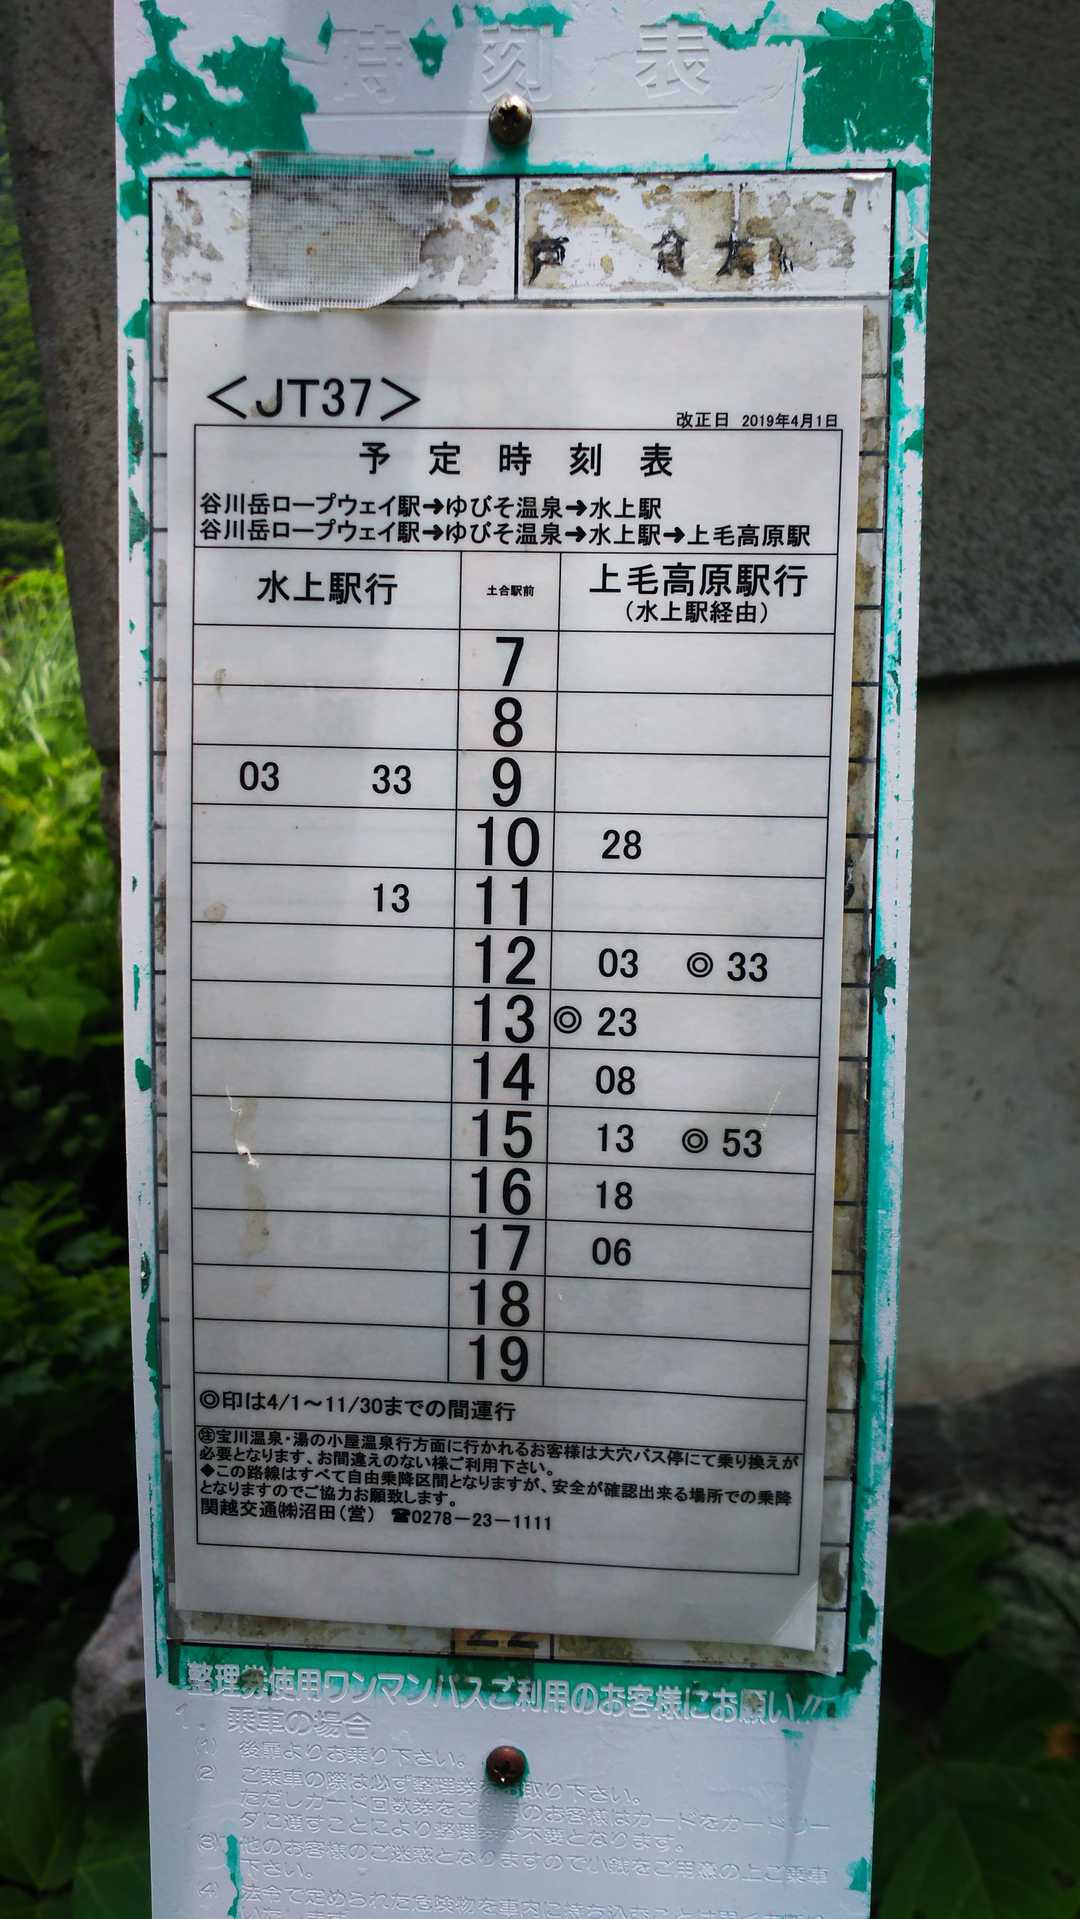 時刻表
＜JT37＞
改正日 2019年4月1日
予定時刻表
谷川岳ロープウェイ駅➜ゆびそ温泉➜水上駅
谷川岳ロープウェイ駅➜ゆびそ温泉➜水上駅➜上毛高原駅
水上駅行 土合駅前 上毛高原駅行
（水上駅経由）
7
8
03 33 9
10 28
13 11
12 03 ◎33
13 ◎23
14 08
15 13 ◎53
16 18
17 06
18
19
◎印は4/1～11/30までの間運行
㊟宝川温泉・湯の小屋温泉行方面に行かれるお客様は大穴バス停にて乗り換えが
必要となります、お間違えのない様ご利用下さい。
◆この路線はすべて自由乗降区間となりますが、安全が確認出来る場所での乗降
となりますのでご協力お願致します。
関越交通㈱沼田（営） ☎0278－23－1111
22
整理券使用ワンマンバスご利用のお客様にお願い//
1. 乗車の場合
(1) 後扉よりお乗り下さい。
(2) ご乗車の際は必ず整理券をお取り下さい。
ただしカード回数券をご利用のお客様はカードをカードリー
ダに通すことにより整理券が不要となります。
(3) 他のお客様のご迷惑となりますので小銭をご用意の上ご乗車
下さい。
(4) 法令で定められた危険物を車内に持ち込むことは